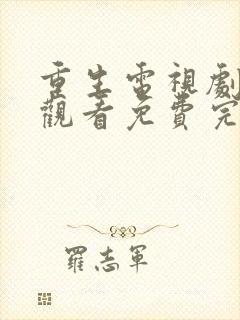 重生電視劇
觀看免費完
羅志軍